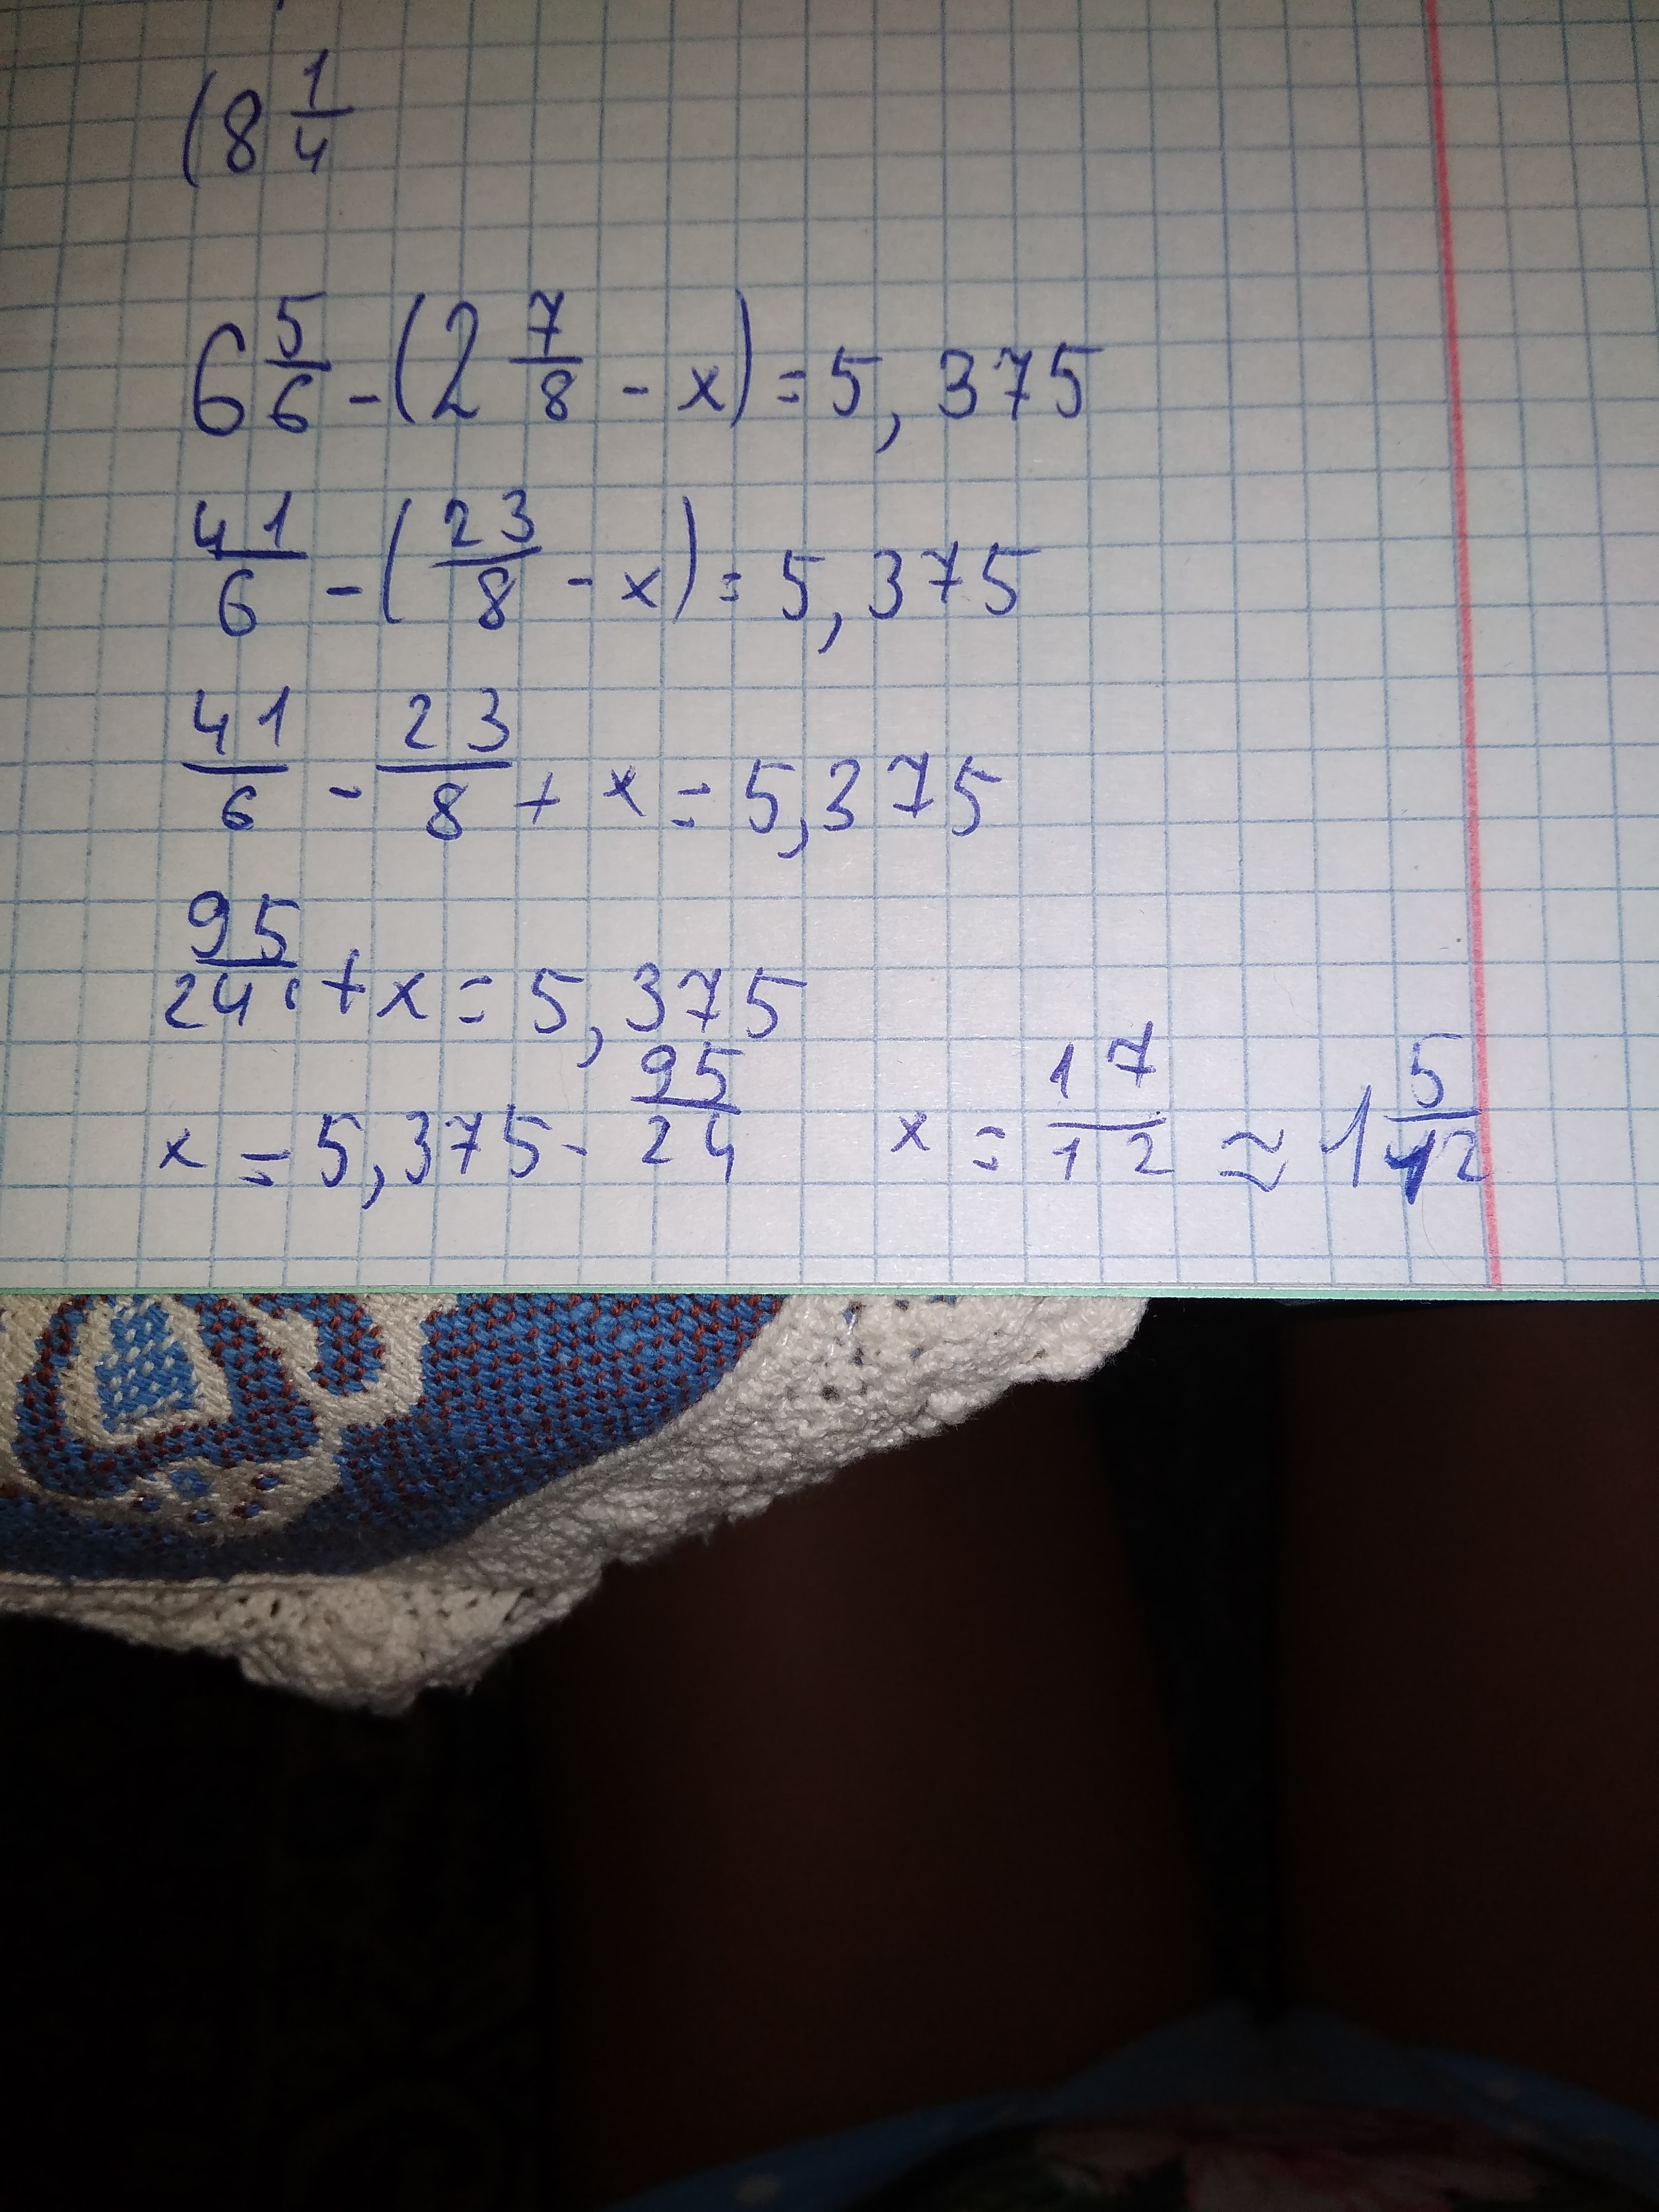 (8 1/4
6 5/6 - (2 7/8 - x) = 5,375
41/6 - (23/8 - x) = 5,375
41/6 - 23/8 + x = 5,375
95/24 + x = 5,375
x = 5,375 - 95/24   x = 17/12 ≈ 1 5/12